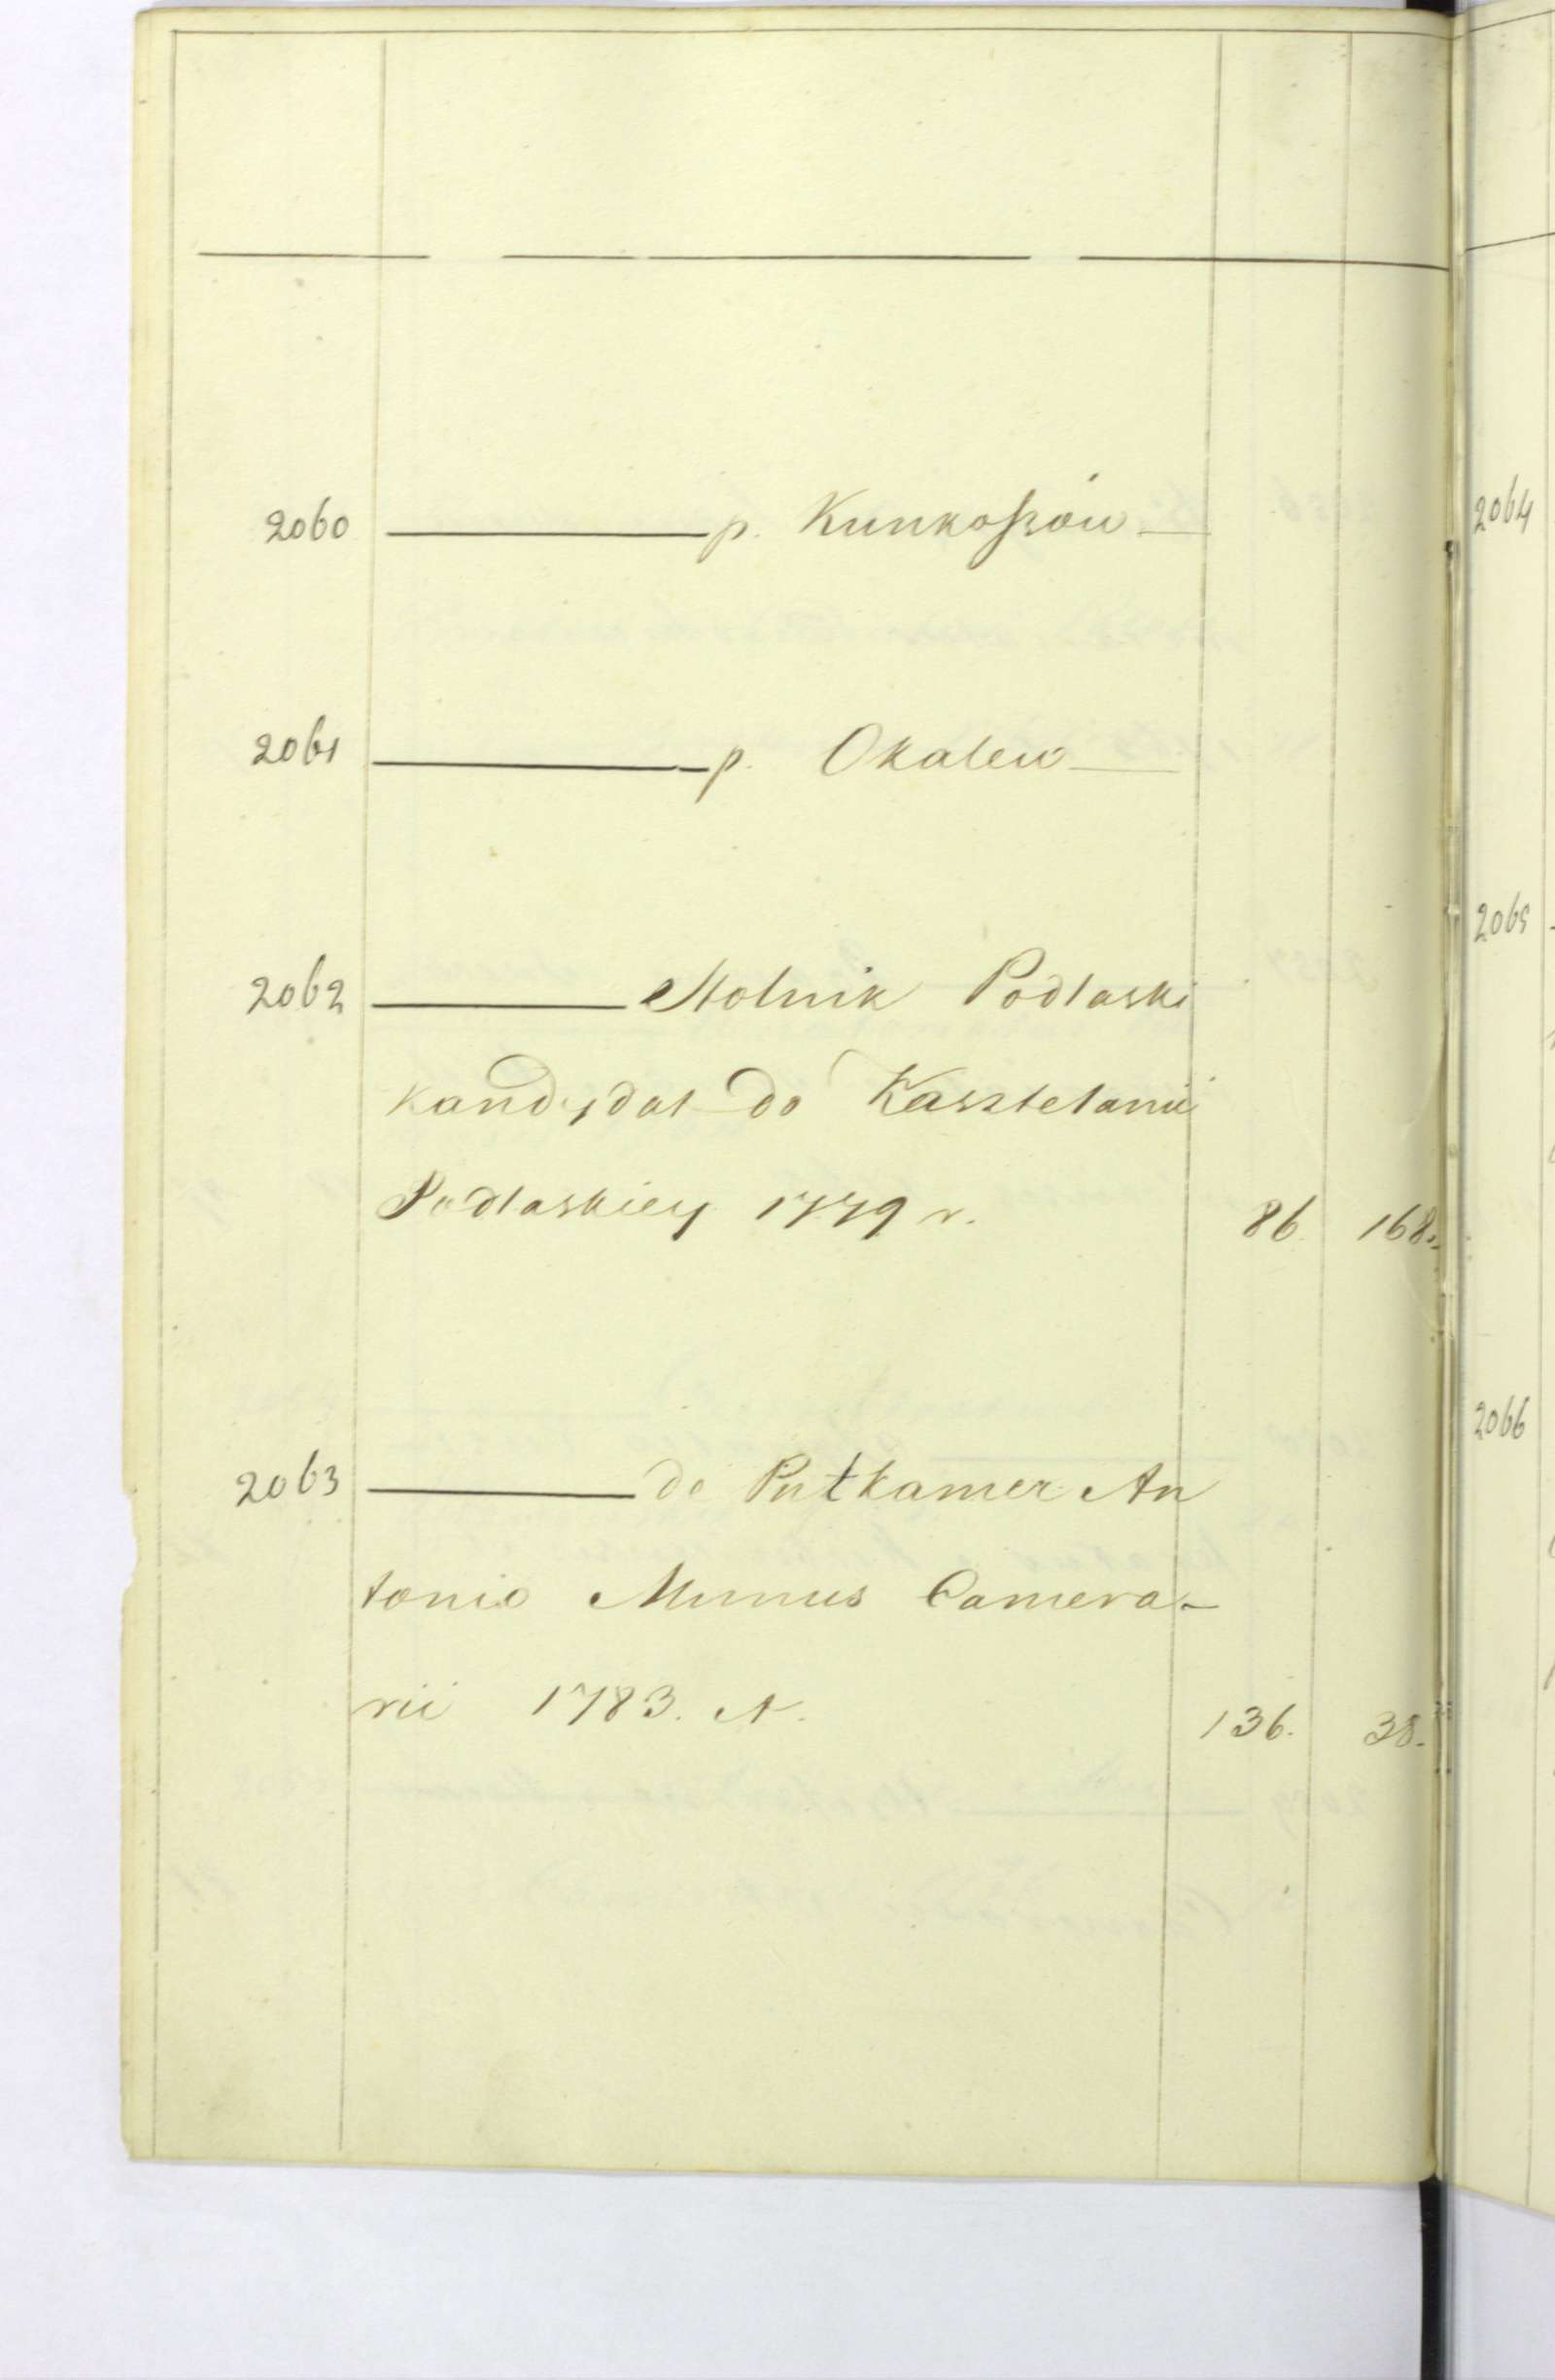 2060 ——— p. Kunkoszów —
2061 ——— p. Okalew —
2062 ——— Stolnik Podlaski
kandydat do Kasztelanii
Podlaskiey 1779 r. 86. 168.
2063 ——— de Putkamer An
tonio Munus Camera-
rii 1783. A. 136. 38.
2064
2065
2066